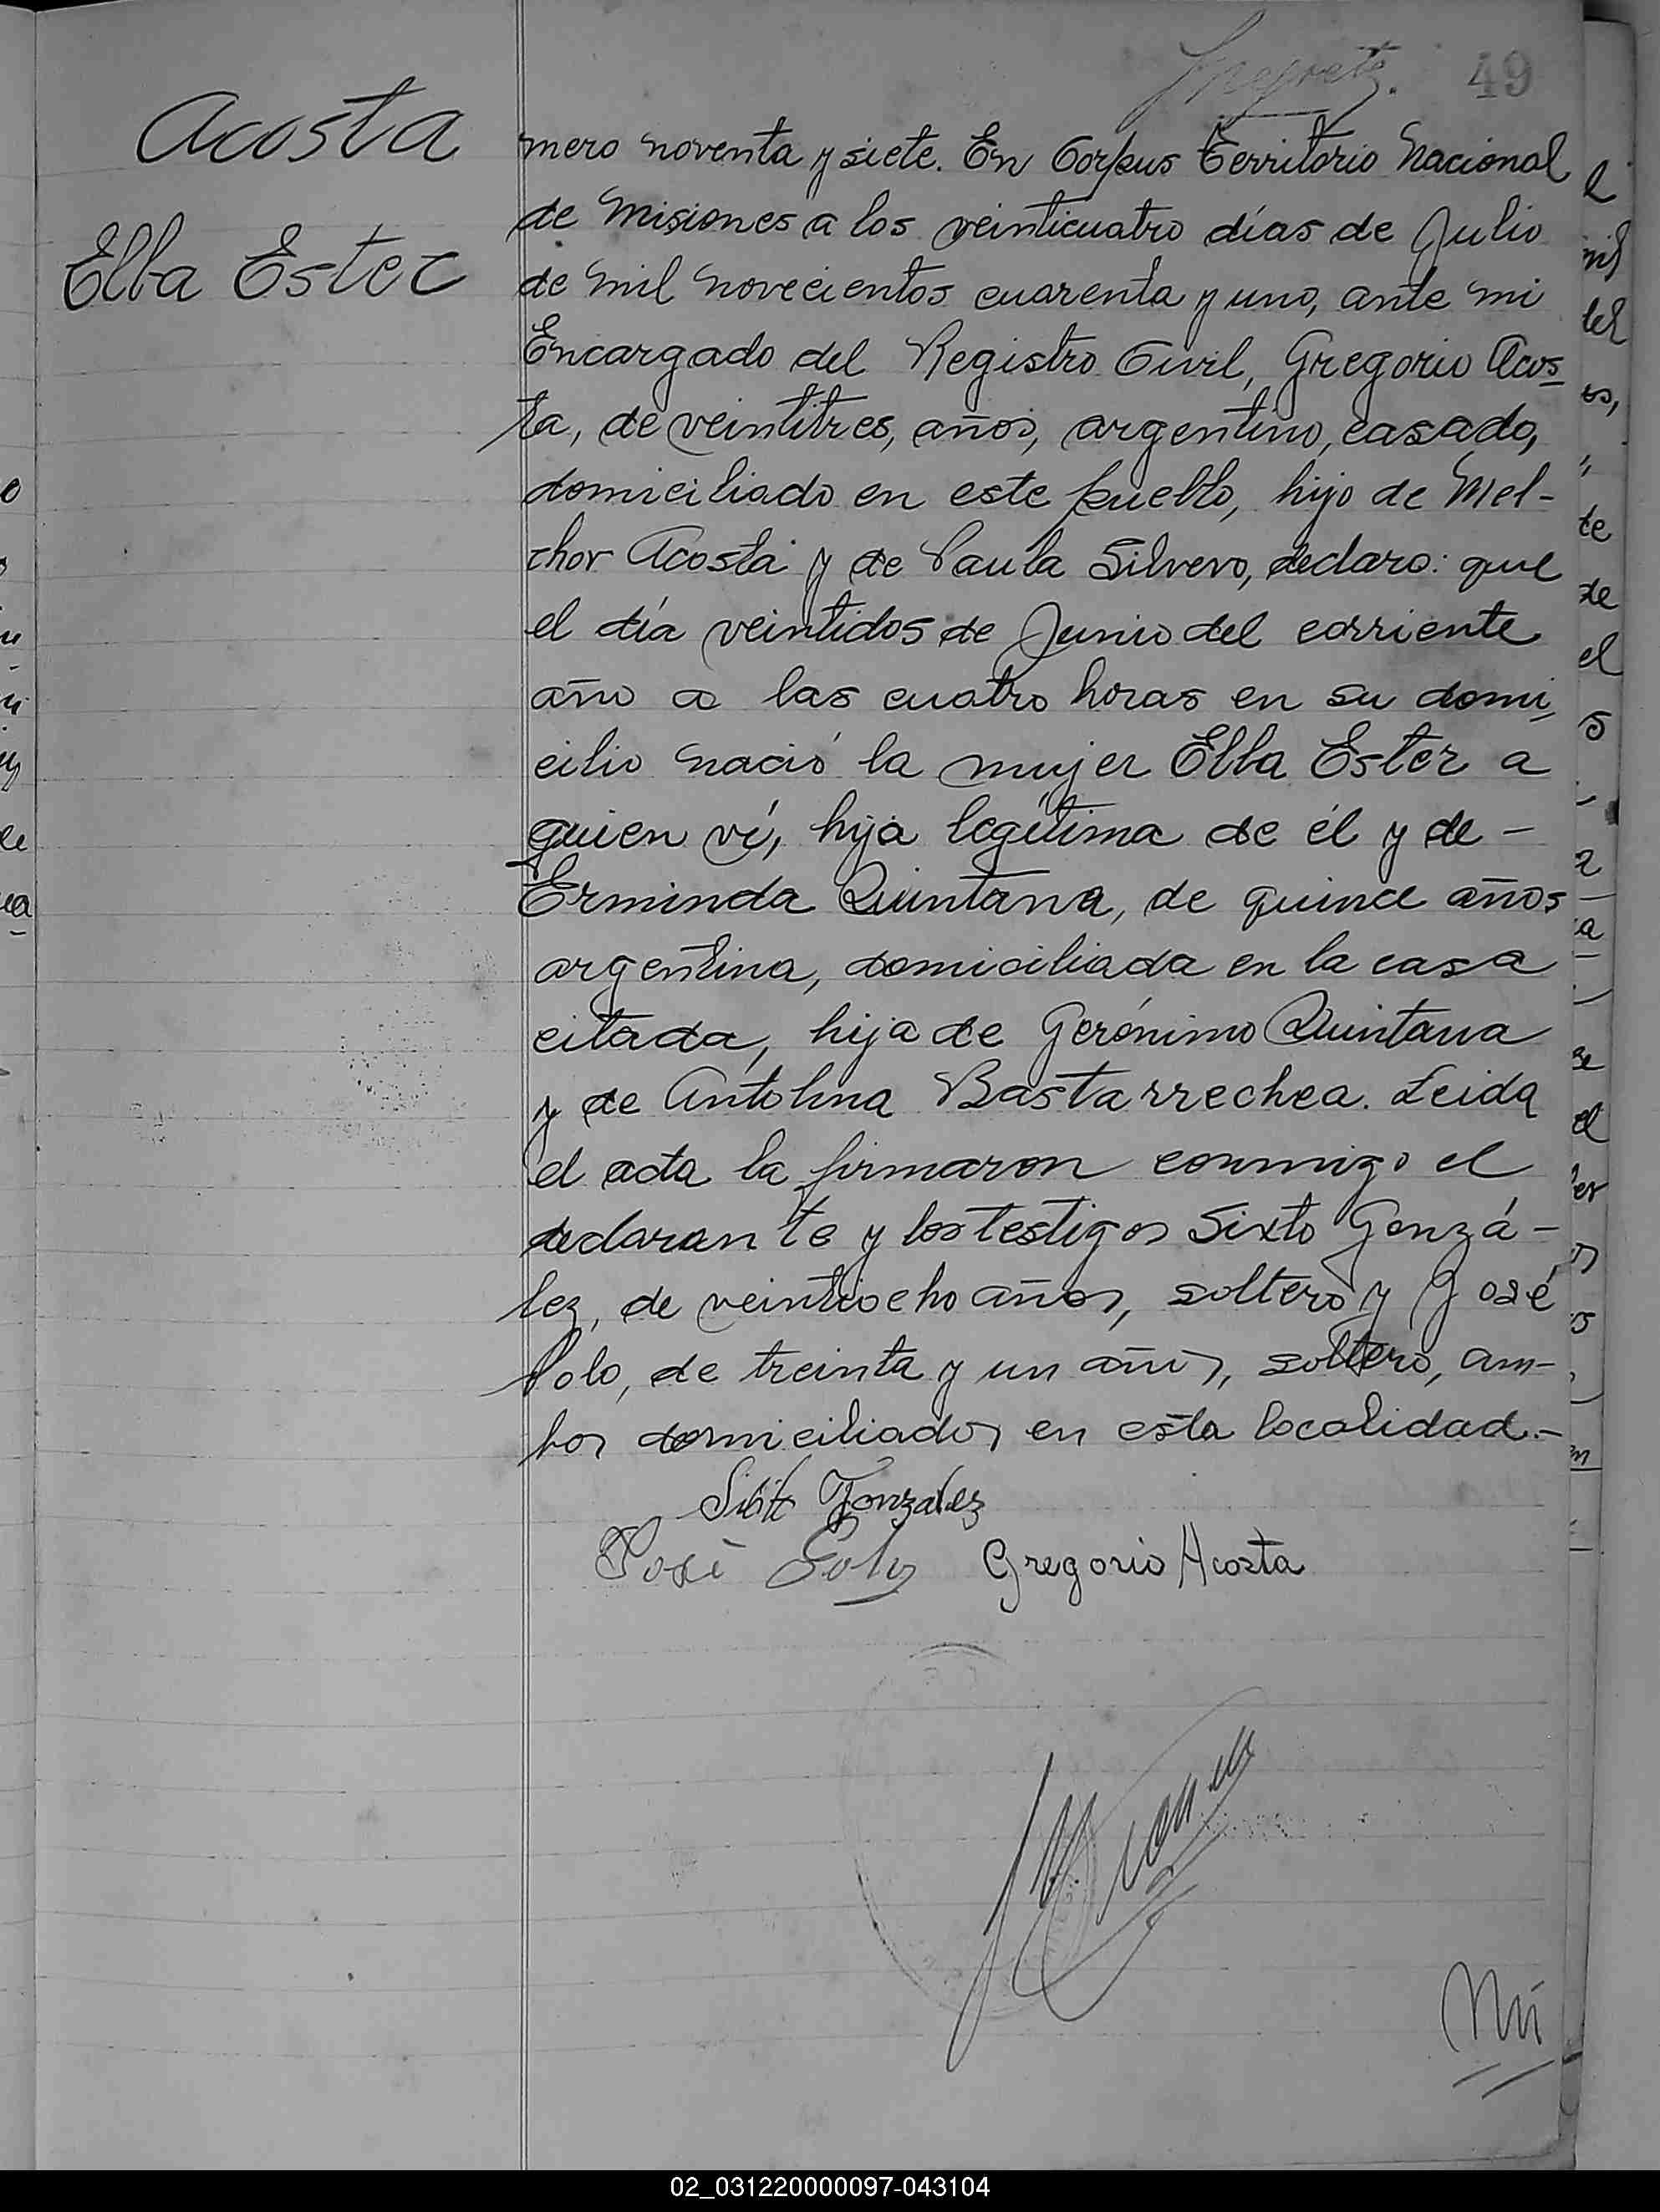 49
Acosta
Elba Ester
mero noventa y siete. En Corpus Territorio Nacional
de Misiones a los veinticuatro días de Julio
de mil novecientos cuarenta y uno, ante mi
Encargado del Registro Civil, Gregorio Acos_
ta, de veintitres, años, argentino, casado,
domiciliado en este pueblo, hijo de Mel-
chor Acosta y de Paula Silvero, declaro: que
el día veintidos de Junio del corriente
año a las cuatro horas en su domi_
cilio nació la mujer Elba Ester a
quien ví, hija legítima de él y de -
Erminda Quintana, de quince años
argentina, domiciliada en la casa
citada, hija de Gerónimo Quintana
y de Antolina Bastarrechea. Leida
el acta la firmaron conmigo el
declarante y los testigos Sixto Gonzá-
lez, de veintiocho años, soltero y José
Polo, de treinta y un años, soltero, am-
bos domiciliados en esta localidad.-
Sixto Gonzalez
José Polo Gregorio Acosta
Nú
02_031220000097-043104